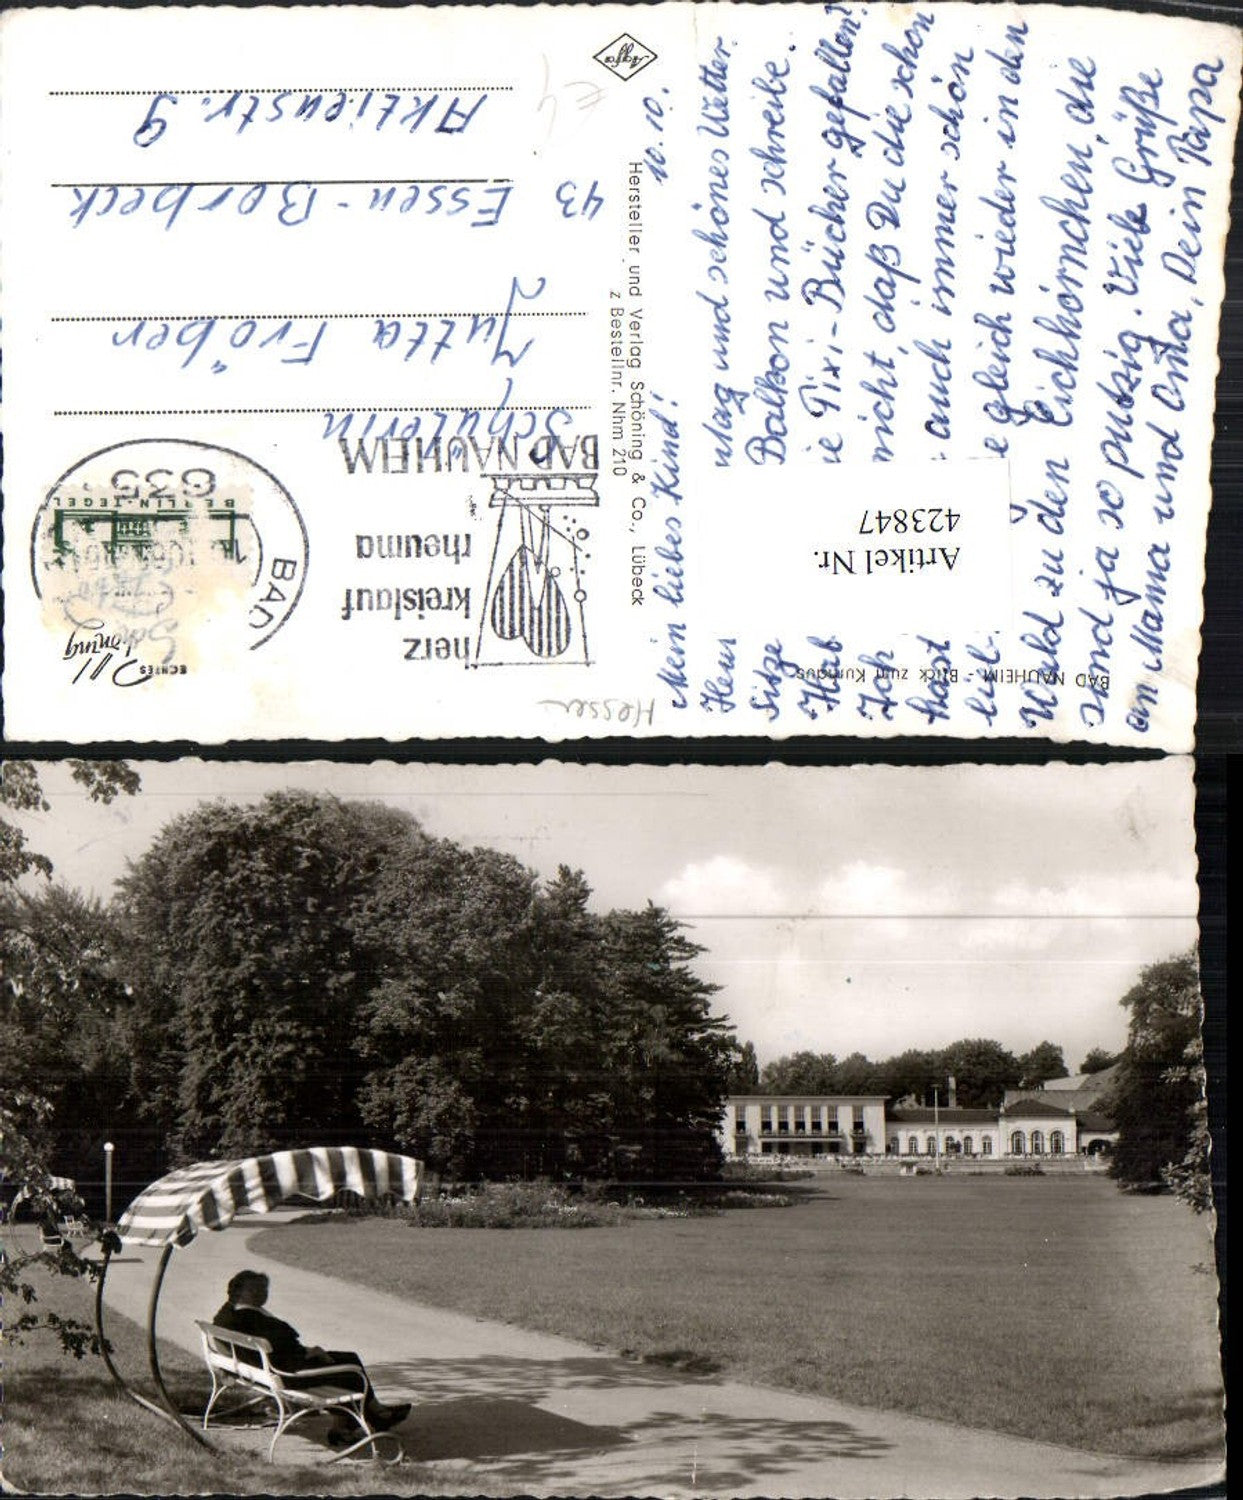 10.10.
Mein liebes Kind!
Heu ntag und schönes Wetter.
Sitze Balkon und schreibe.
Hab ie Pixi-Bücher gefallen?
Ich nicht, daß Du die schon
hast auch immer schön
lieb e gleich wieder in den
Wald zu den Eichhörnchen, die
sind ja so putzig. Viele Grüße
an Mama und Oma, Dein Papa
Agfa
Hersteller und Verlag Schöning & Co., Lübeck
z Bestellnr. Nhm 210
BAD NAUHEIM - Blick zum Kurhaus
ECHTES
Schöning
BAD
635
BERLIN-TEGEL
herz
kreislauf
rheuma
BAD NAUHEIM
Schülerin
Jutta Fröber
2
43 Essen-Borbeck
Aktienstr. 9
Hessen
Artikel Nr.
423847